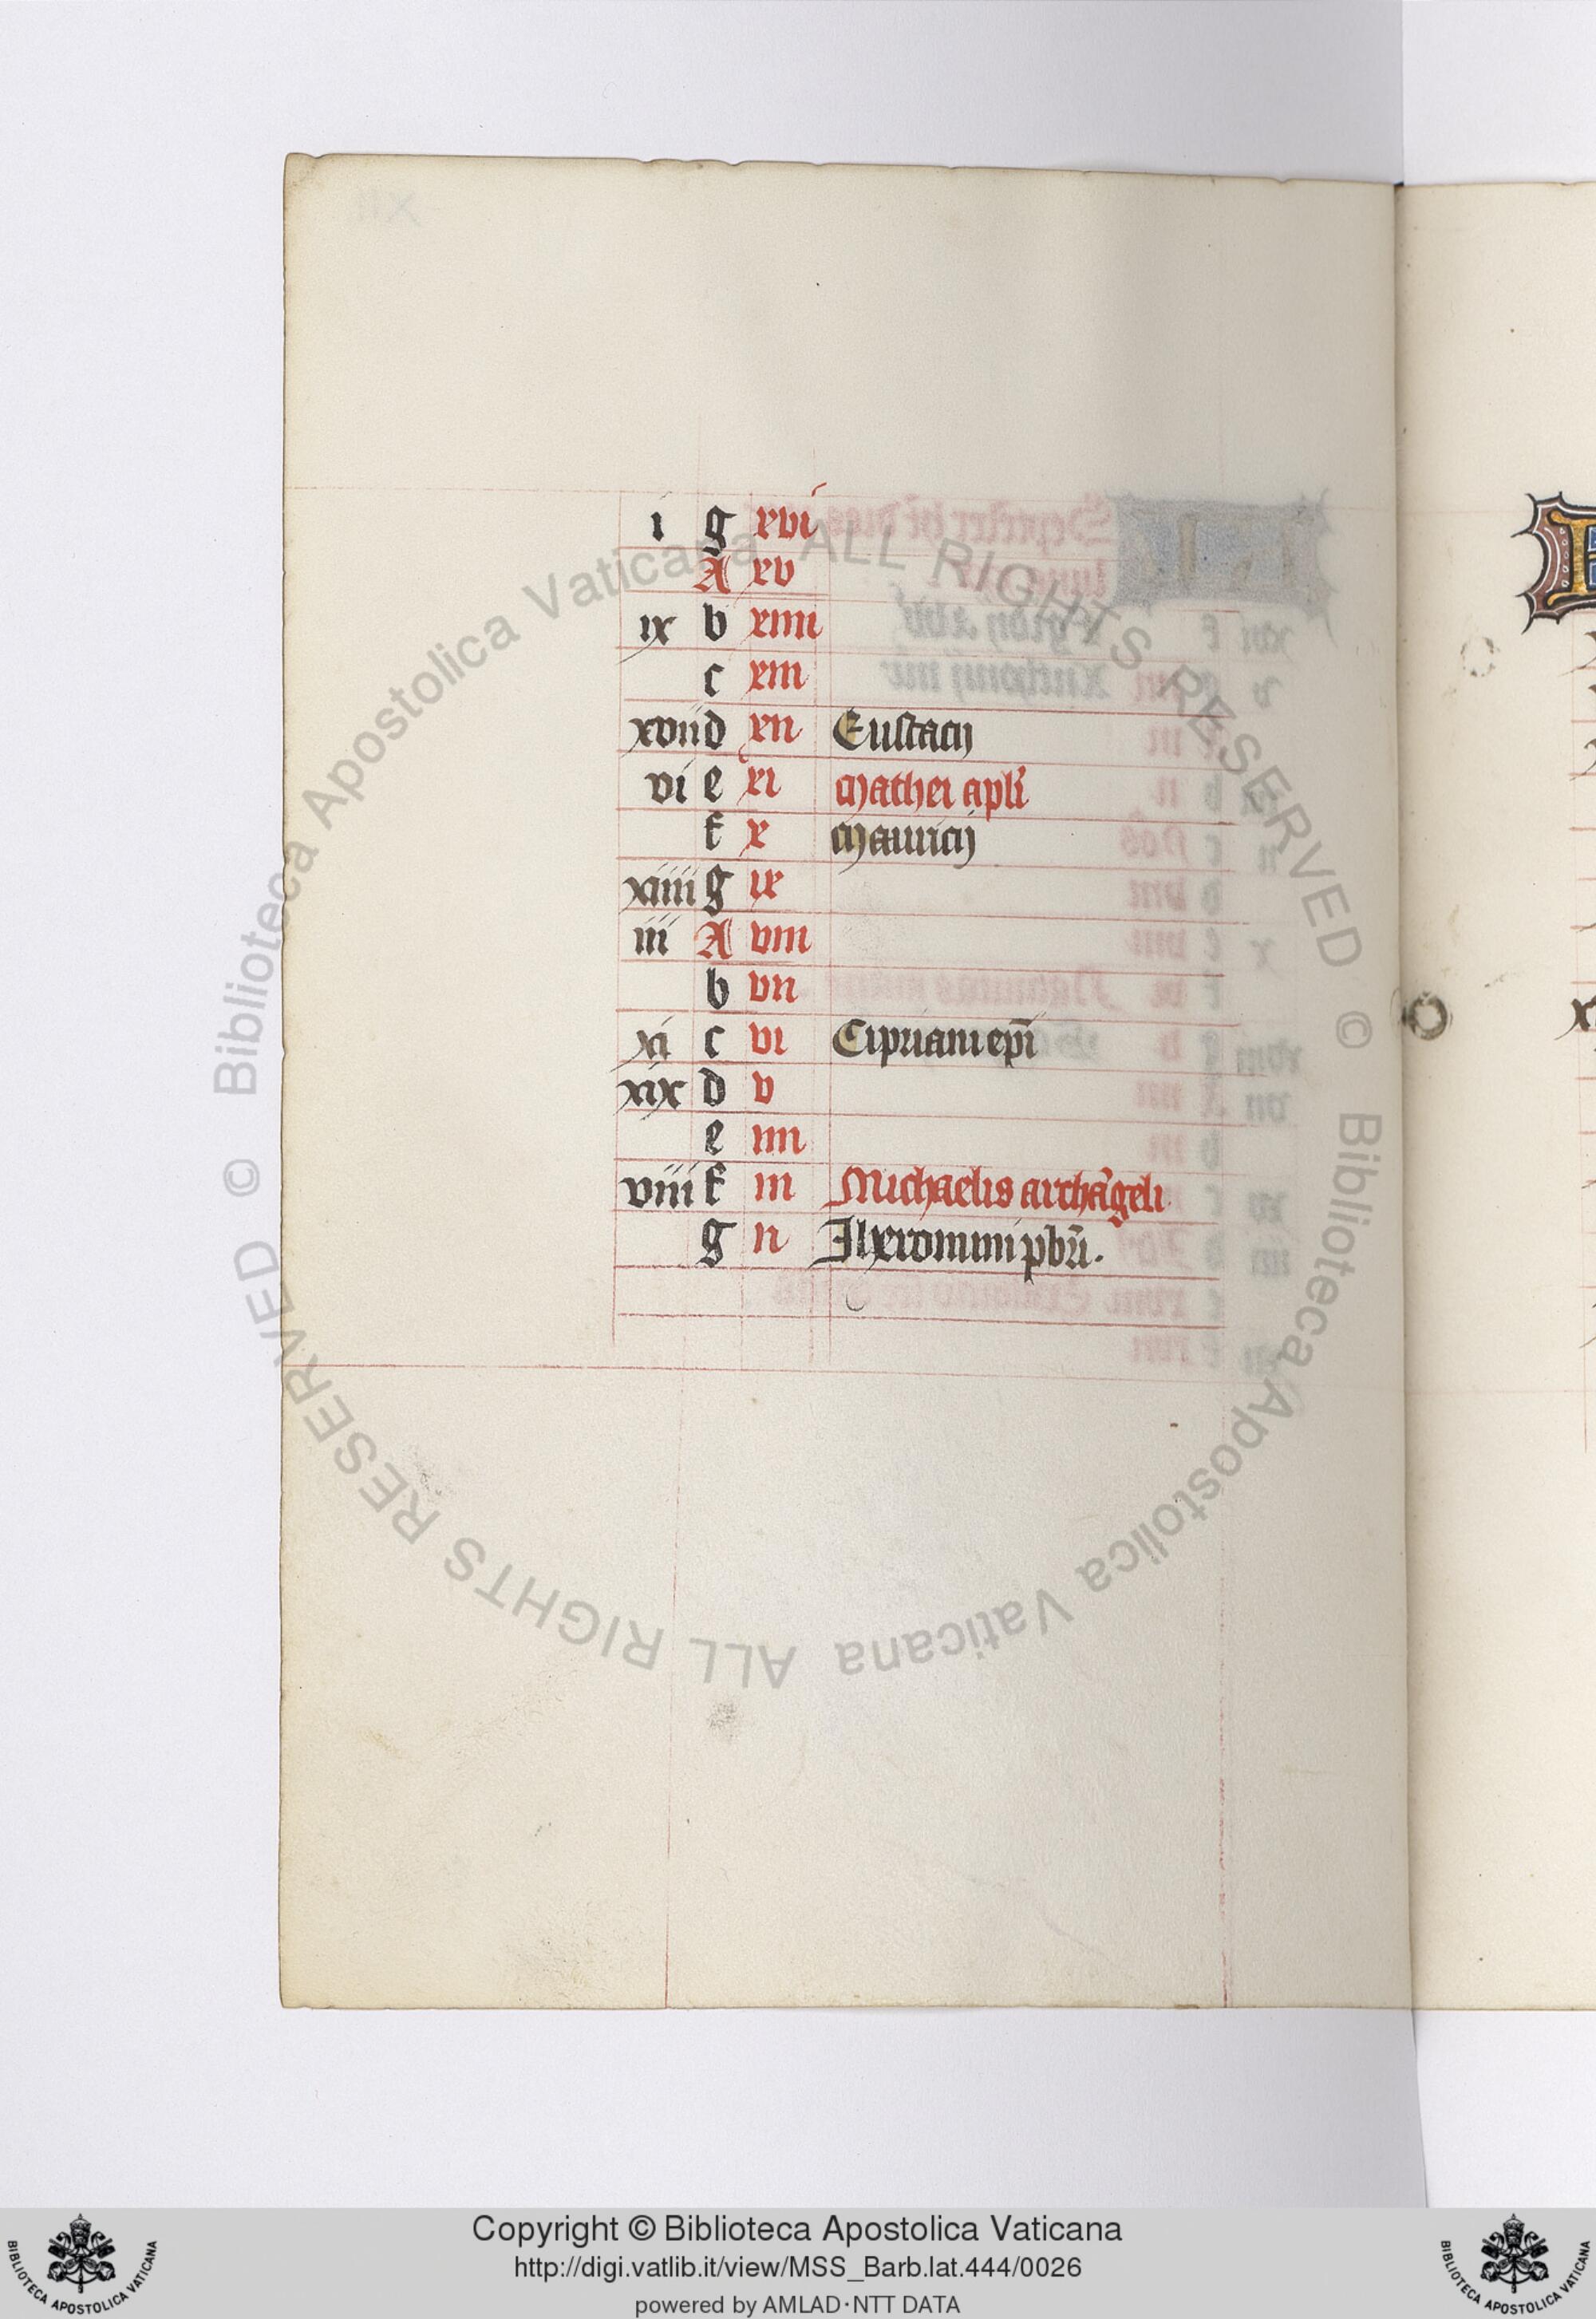 i g xvi
A xv
ix b xiiii
c xiii
xvii d xii Eustacij
vi e xi Mathei apłi
f x Mauricij
xiiii g ix
iii A viii
b vii
xi c vi Cipriani epī
xix d v
e iiii
viii f iii Michaelis archāgeli
g ii Iheronimi pbrī.
© Biblioteca Apostolica Vaticana ALL RIGHTS RESERVED
© Biblioteca Apostolica Vaticana ALL RIGHTS RESERVED
Copyright © Biblioteca Apostolica Vaticana
http://digi.vatlib.it/view/MSS_Barb.lat.444/0026
powered by AMLAD·NTT DATA
BIBLIOTECA APOSTOLICA VATICANA
BIBLIOTECA APOSTOLICA VATICANA